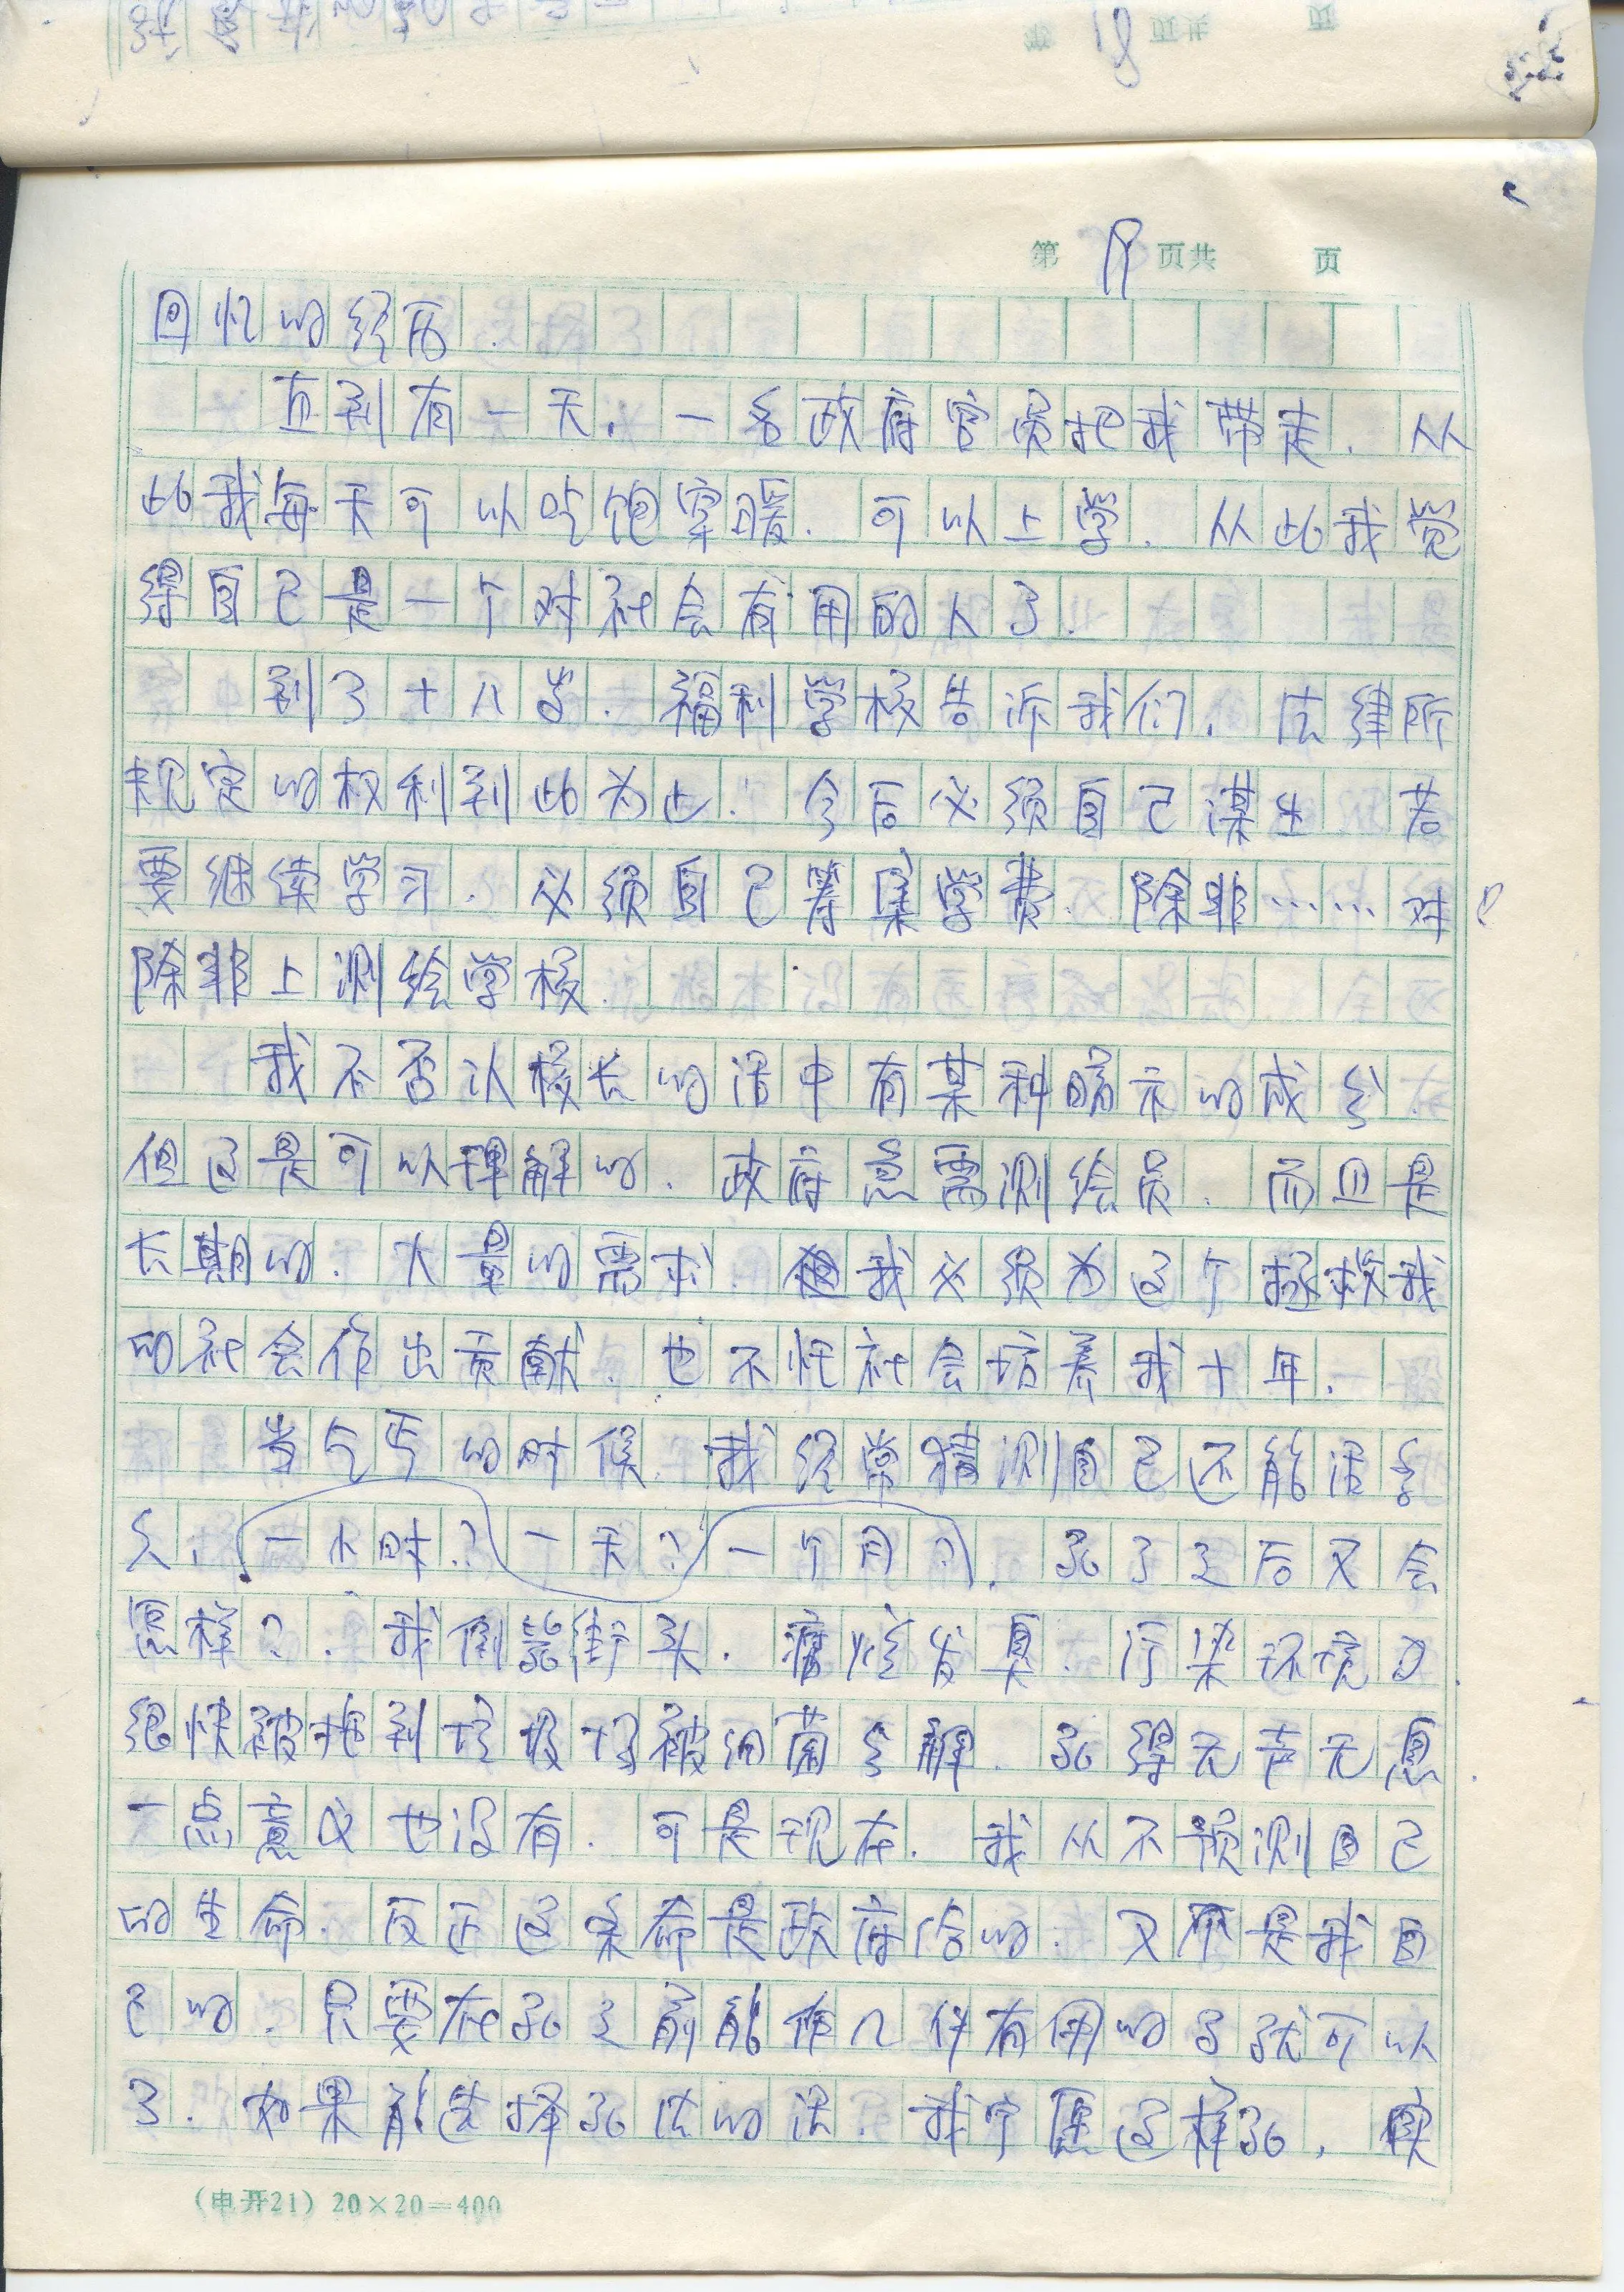 18 页共 页
第 19 页共 页
回忆的经历.
直到有一天,一名政府官员把我带走.从
此我每天可以吃饱穿暖.可以上学.从此我觉
得自己是一个对社会有用的人了.
到了十八岁.福利学校告诉我们,法律所
规定的权利到此为止.今后必须自己谋生 若
要继续学习.必须自己筹集学费.除非……对
除非上测绘学校.
我不否认校长的话中有某种暗示的成分.
但这是可以理解的.政府急需测绘员.而且是
长期的.大量的需求.我必须为这个拯救我
的社会作出贡献.也不枉社会培养我十年.
当乞丐的时候 我经常猜测自己还能活多
久,一小时?一天?一个月?.死了之后又会
怎样?.我倒毙街头.腐烂发臭.污染环境
很快被拖到垃圾场被细菌分解.死得无声无息.
一点意义也没有.可是现在.我从不预测自己
的生命.反正这条命是政府给的.又不是我自
己的.只要在死之前能作几件有用的事就可以
了.如果能选择死法的话.我宁愿这样死,
(电开21) 20×20=400